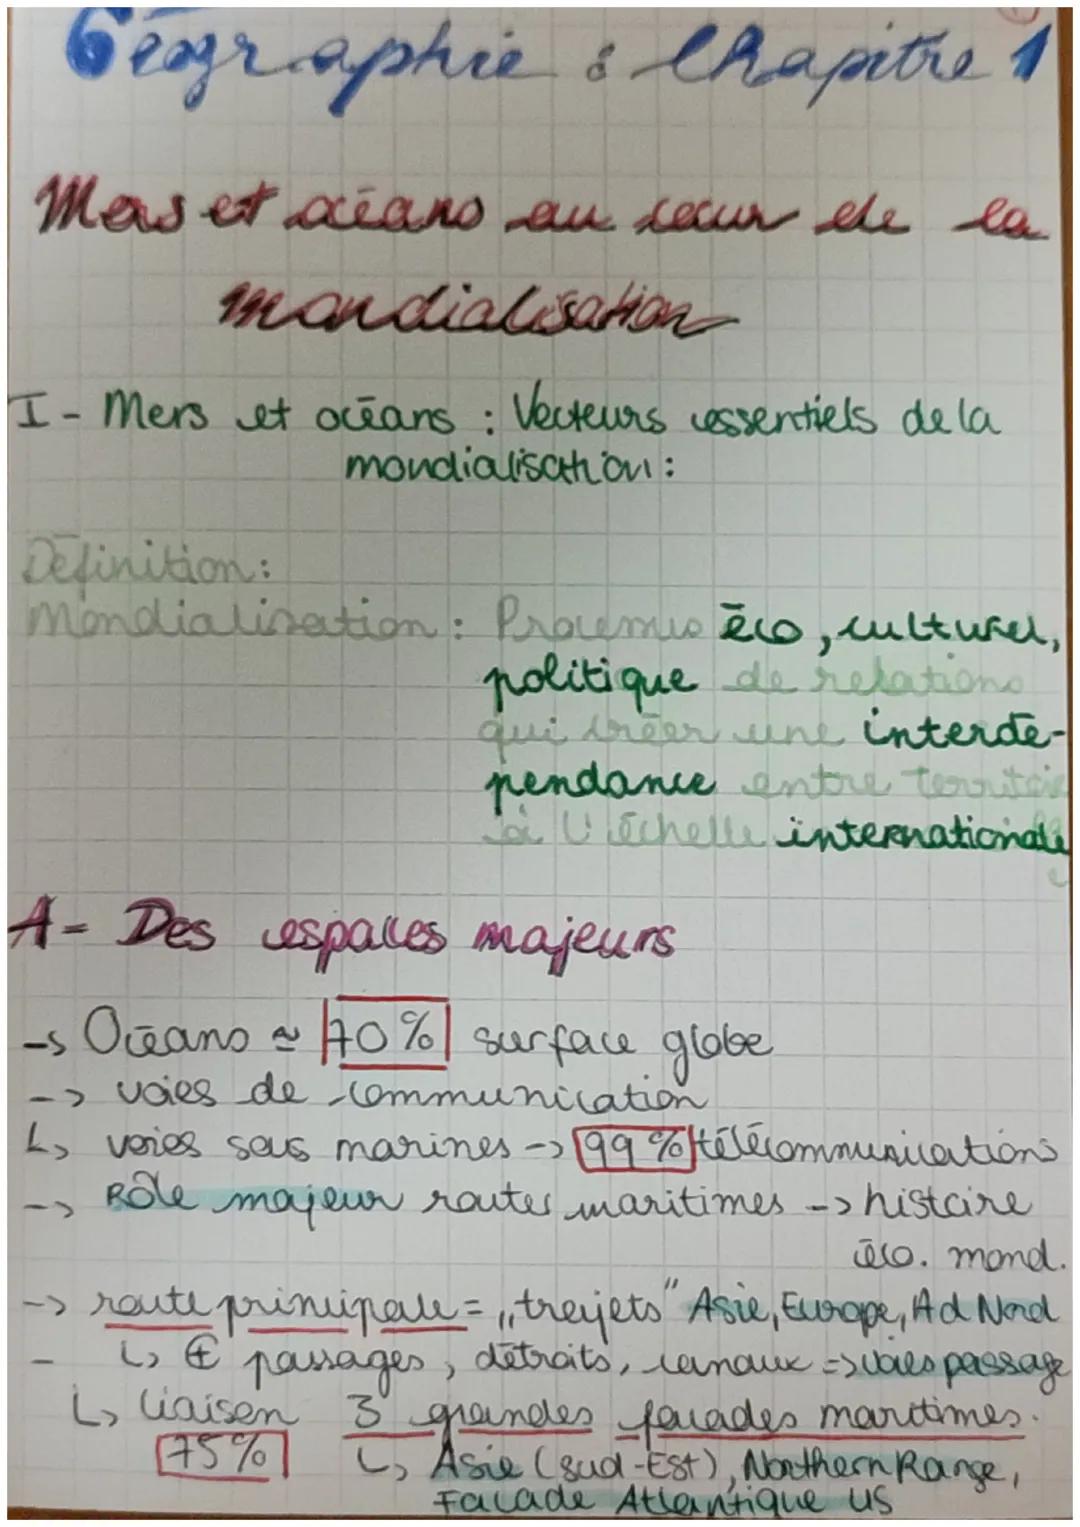 Géographie : Chapitre 1
Mers et océans au cœur de la
mondialisation
I - Mers et océans : Vecteurs essentiels de la
mondialisation :
Définition :
Mondialisation : Processus éco, culturel,
politique de relations
qui créer une interdé-
pendance entre territoire
à l'échelle internationale
A- Des espaces majeurs
-> Océans ≃ 70% surface globe
-> voies de communication
↳ voies sous marines -> 99% télécommunications
-> Rôle majeur routes maritimes -> histoire
éco. mond.
-> route principale = ,,trajets" Asie, Europe, Ad Nord
- ↳ ⊕ passages, détroits, canaux => voies passage
↳ liaison 3 grandes facades maritimes.
75% ↳ Asie (sud-Est), Northern Range,
Facade Atlantique US